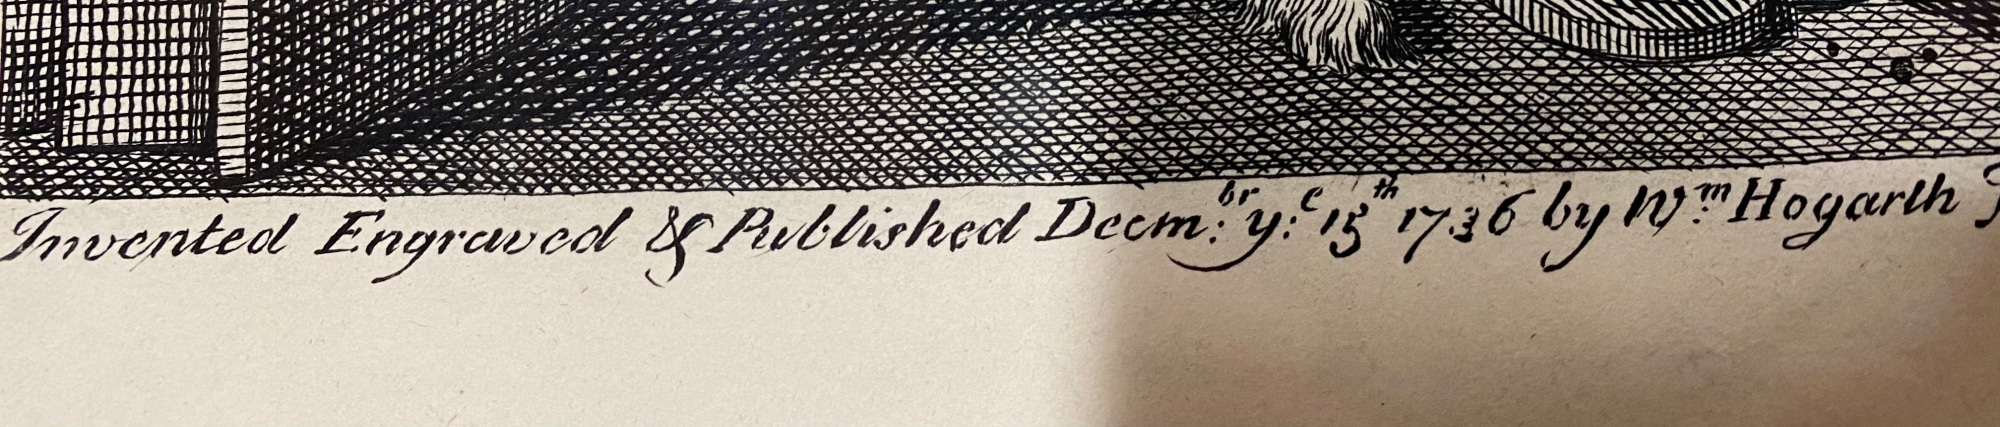 Invented Engraved & Published Decm:br y:e 15th 1736 by Wm: Hogarth